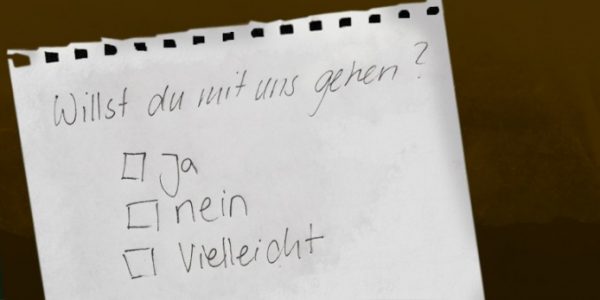 Willst du mit uns gehen?
Ja
nein
Vielleicht